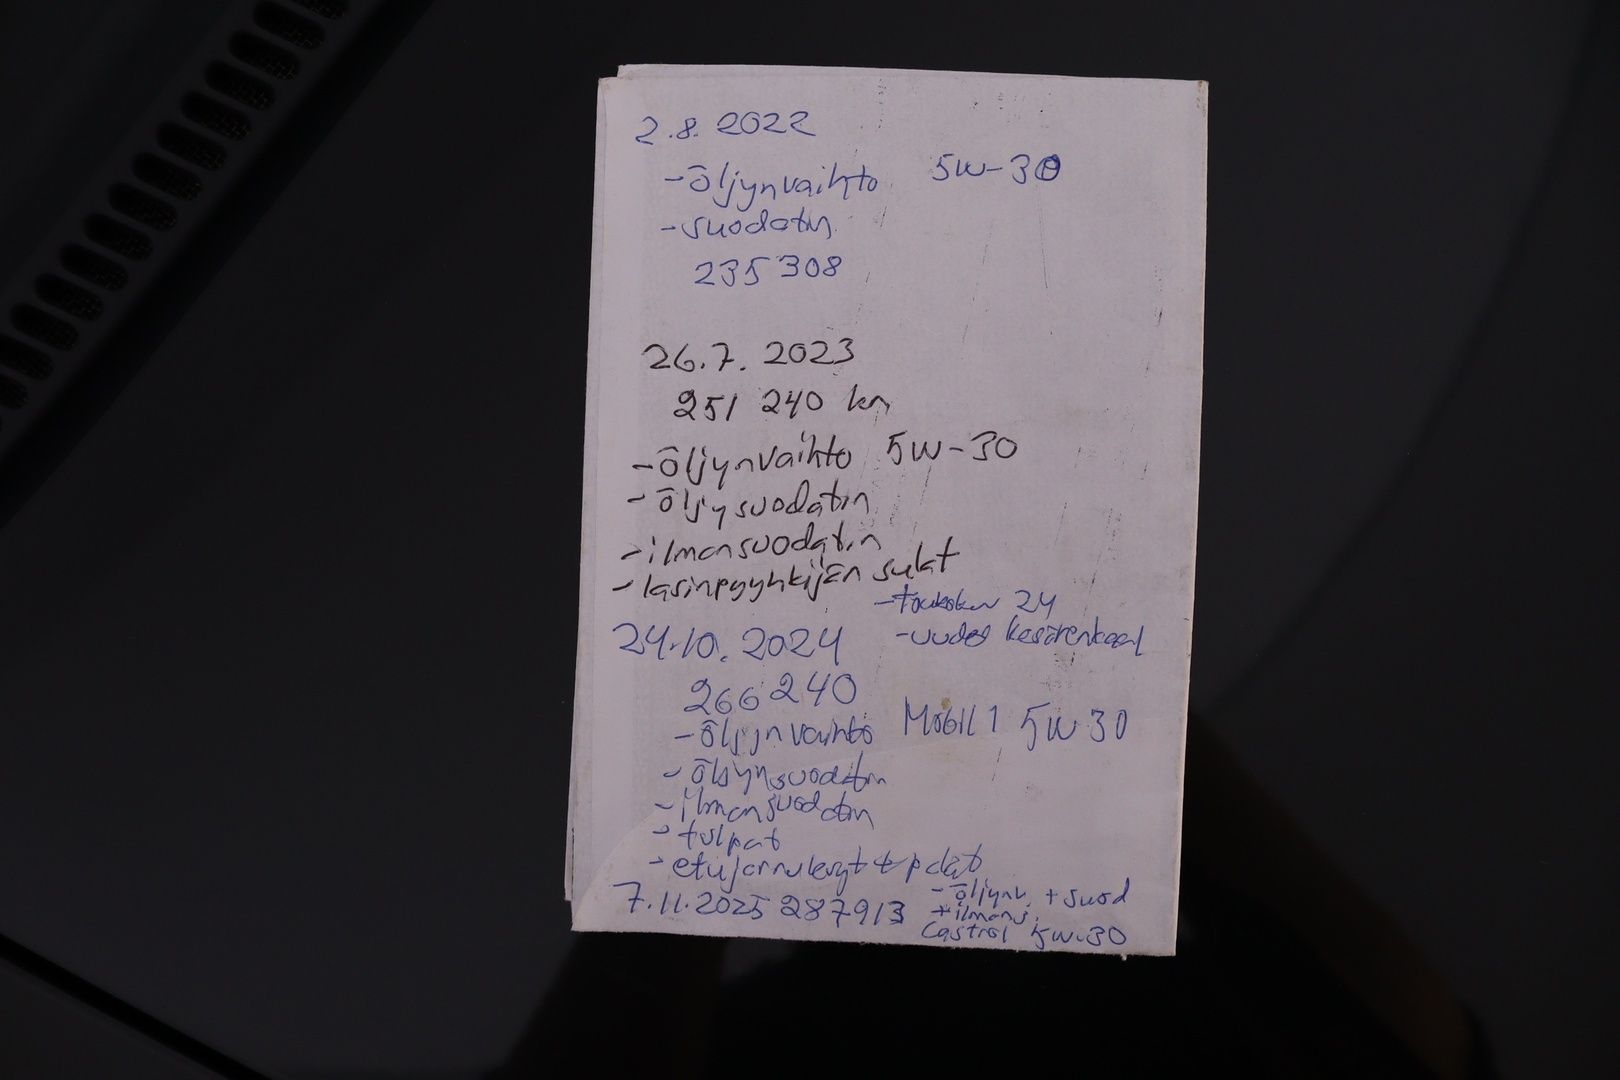 2.8.2022
-öljynvaihto 5W-30
-suodatin
235 308
26.7.2023
251 240 km
-öljynvaihto 5W-30
-öljysuodatin
-ilmansuodatin
-lasinpyyhkijän sulat
-toukokuu 24
-uudet kesärenkaat
24.10.2024
266 240
-öljynvaihto Mobil 1 5W 30
-öljynsuodatin
-ilmansuodatin
-tulpat
-etujarrulevyt + palat
7.11.2025 287913
-öljynv. + suod
+ilmans.
Castrol 5W-30